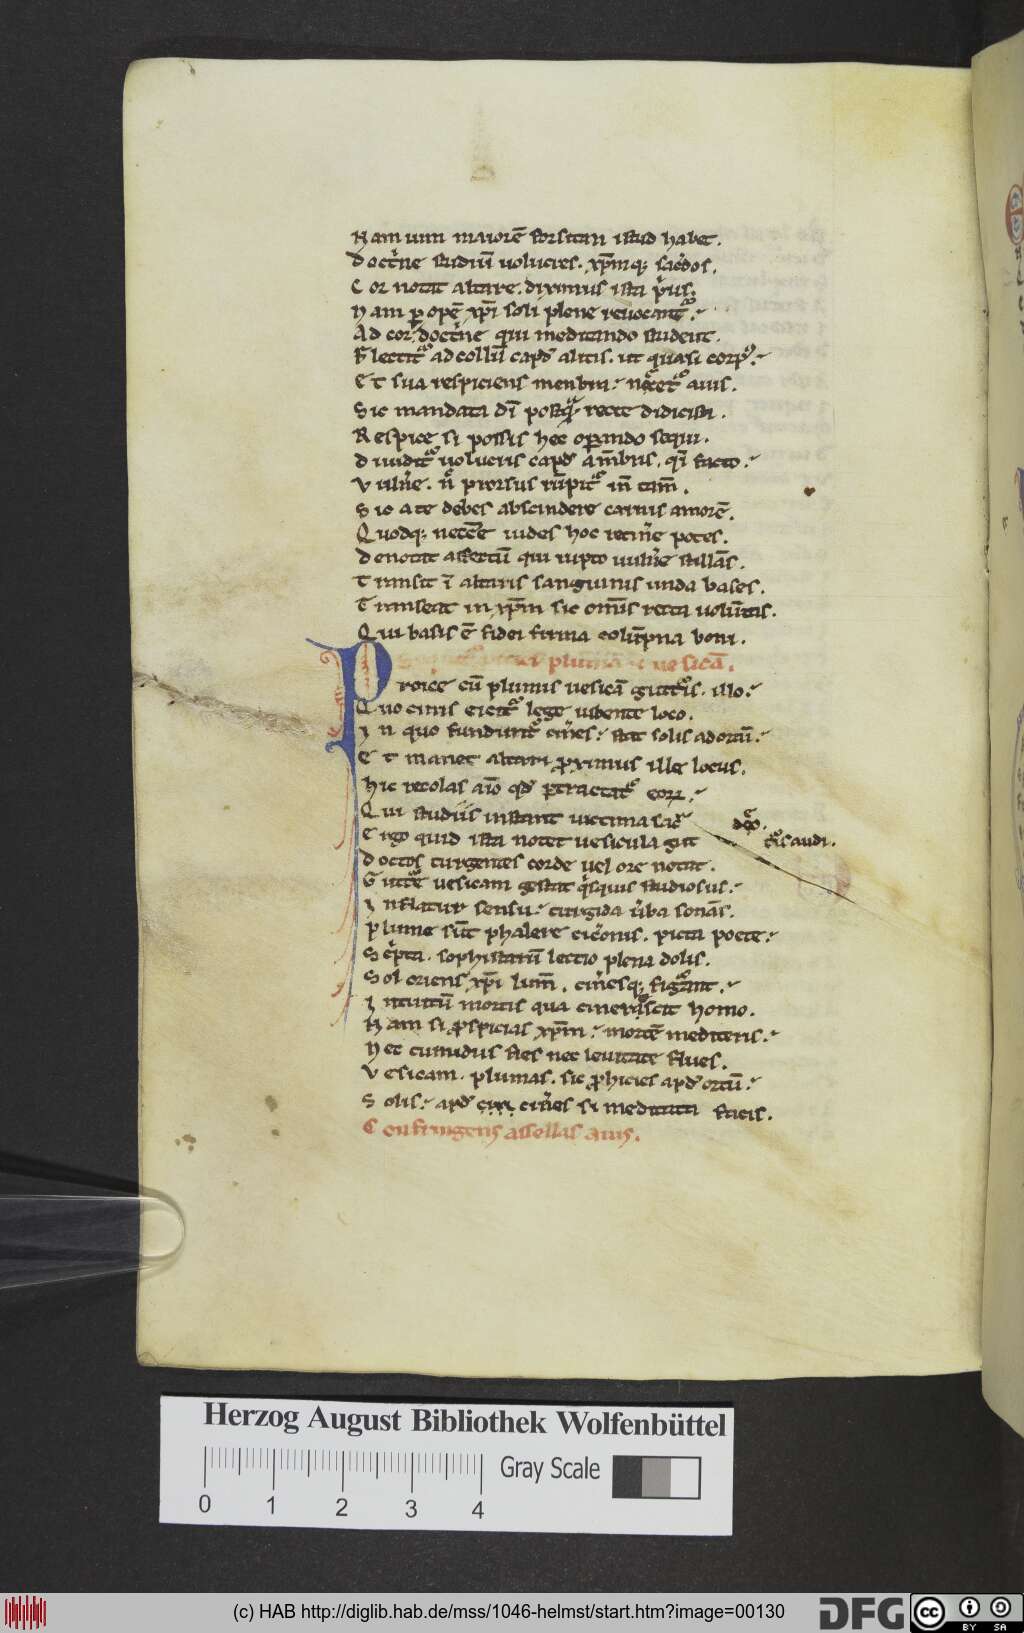 Nam uim maiorē forsitan istud habet.
Doctͥne studiū uolucres. xp̄mq; sac̄dos.
Cor notat altare. diximus ista pͥus.
Nam ꝑ opē xp̄i soli plene reuocant᷑.
Ad cor doctͥne qui meditando student.
Flectit᷑ ad collū capd̓ alitis. ut quasi corp᷑.
Et sua respiciens menbra. auis.
Sic mandata dī postqᷓ recte didicisti.
Respice si possis hec oꝑando sequi.
Diuidit᷑ uolucris capd̓ a mēbris. facto.
Vuln̄e. n̄ prorsus rūpit᷑ tam̄.
Sic a te debes abscindere carnis amorē.
Quodq; necc̄e uides hoc retin̄e potes.
Denotat affectū qui rupto uuln̄e stillās.
Transit ī altaris sanguinis unda bases.
Transeat in xp̄m sic om̄is recta uolūtas.
Qui basis ē fidei firma colūpna boni.
plumā uesicā.
Proice cū plumis uesicā gutt᷑is. illo.
Quo cinis eicit᷑ lege iubente loco.
In quo fundunt᷑ cin̄es. stat solis ad ortū.
Et manet altari ꝓximus ille locus.
Hic recolas aīo qd̓ ꝑtractat᷑ eoꝝ.
Qui studiis instant uictima sac̄ deo.
Ergo quid ista notet uesicula gut t᷑is audi.
Doctos turgentes corde uel ore notat.
Gutt̄e uesicam gestat qͥsquis studiosus.
Inflatur sensu. turgida ūba sonās.
Plume sūt phalere cic̄onis. picta poete.
Scͥpta. sophistarū lectio plena dolis.
Sol oriens xp̄i lum̄. cin̄esq; figᷓant.
Intuitū mortis qua cinerascit homo.
Nam si ꝓspicias xp̄m. mortē mediteris.
Nec tumidus stes nec leuitate flues.
Vesicam. plumas. sic ꝓhicies apd̓ ortū.
Solis. apd̓ cin̄es si meditata facis.
Confringens assellas auis.
Herzog August Bibliothek Wolfenbüttel
0 1 2 3 4
Gray Scale
(c) HAB http://diglib.hab.de/mss/1046-helmst/start.htm?image=00130
DFG
cc BY SA